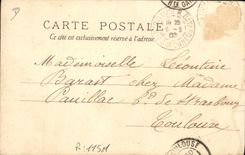 CARTE POSTALE
Ce côté est exclusivement réservé à l'adresse.
Mademoiselle Léontine
Barast chez Madame
Pauillac Bd de Strasbourg
Toulouse
R. 11511
TOULOUSE